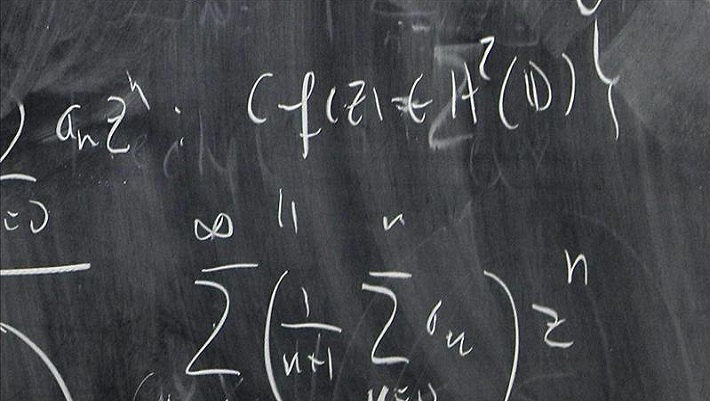 a_n z^n : C f(z) = ∈ H^2(D) }
=0 ∞ || n
∑ ( 1/(n+1) ∑ a_n ) z^n